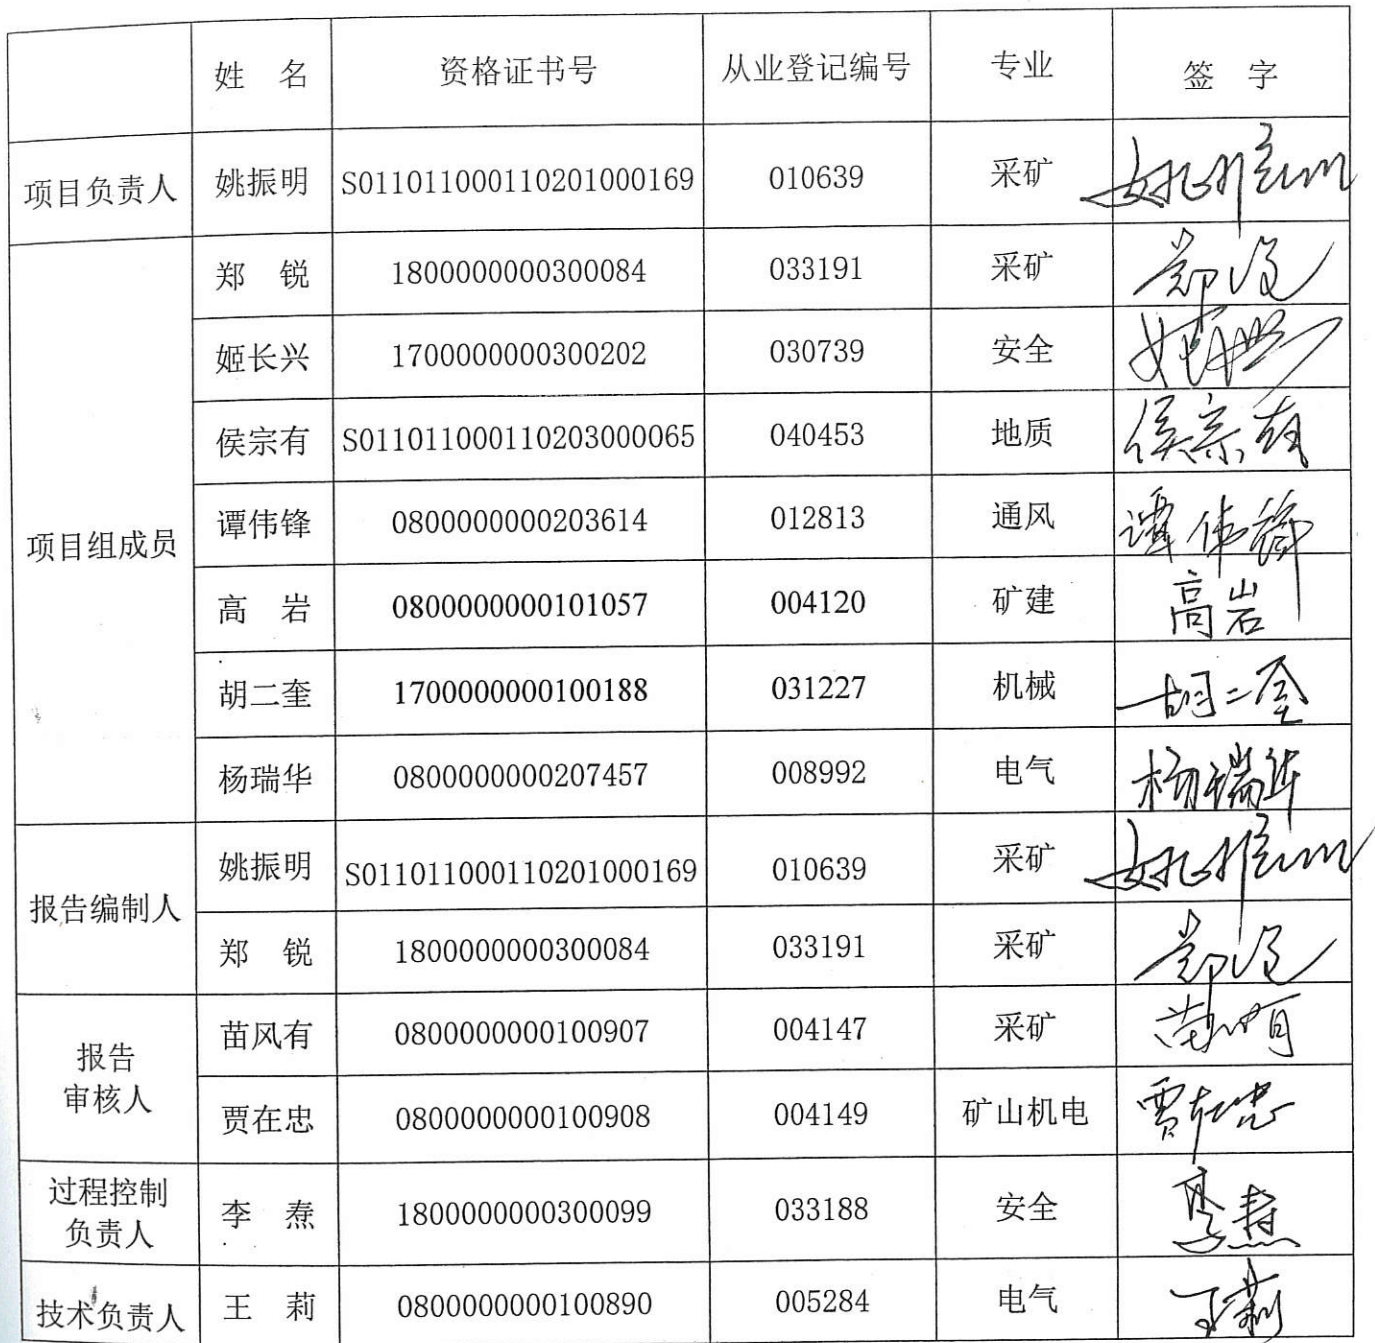 姓 名 资格证书号 从业登记编号 专业 签 字
项目负责人 姚振明 S011011000110201000169 010639 采矿 姚振明
项目组成员
郑 锐 1800000000300084 033191 采矿 郑锐
姬长兴 1700000000300202 030739 安全
侯宗有 S011011000110203000065 040453 地质 侯宗有
谭伟锋 0800000000203614 012813 通风 谭伟锋
高 岩 0800000000101057 004120 矿建 高岩
胡二奎 1700000000100188 031227 机械 胡二奎
杨瑞华 0800000000207457 008992 电气 杨瑞华
报告编制人
姚振明 S011011000110201000169 010639 采矿 姚振明
郑 锐 1800000000300084 033191 采矿 郑锐
报告
审核人
苗风有 0800000000100907 004147 采矿
贾在忠 0800000000100908 004149 矿山机电 贾在忠
过程控制
负责人
李 焘 1800000000300099 033188 安全 李焘
技术负责人 王 莉 0800000000100890 005284 电气 王莉